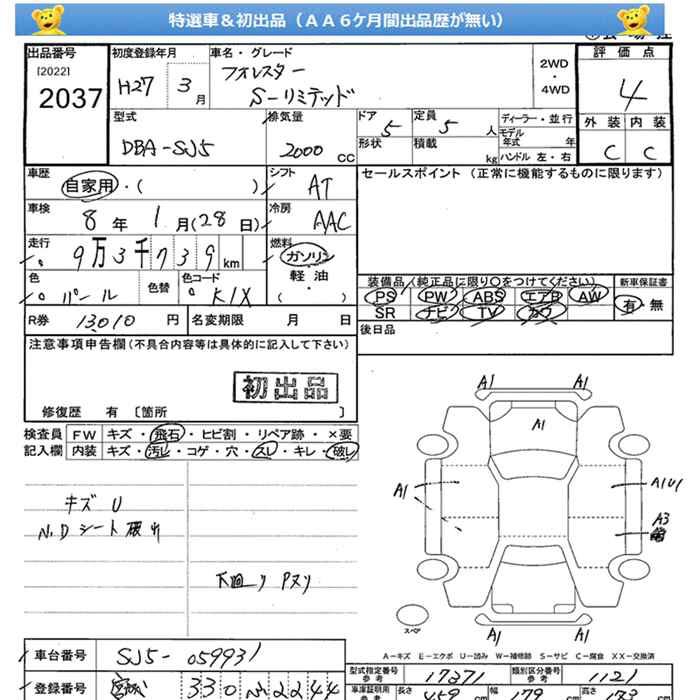 特選車＆初出品（ＡＡ６ケ月間出品歴が無い）
出品番号
[2022]
2037
初度登録年月
H27 3 月
車名・グレード
フォレスター
S-リミテッド
2WD
・
4WD
評価点
4
外装 内装
C C
型式
DBA-SJ5
排気量
2000 CC
ドア 5
形状
定員 5 人
積載 kg
ディーラー・並行
モデル年式 年
ハンドル 左・右
車歴
自家用・( )
シフト AT
セールスポイント（正常に機能するものに限ります）
車検
8 年 1 月(28 日)
冷房 AAC
走行
9万3千739 km
燃料
ガソリン
軽・油
( ・ )
色
パール
色替
色コード
K1X
装備品(純正品に限り○をつけてください)
PS PW ABS エアB AW
SR ナビ TV カワ
新車保証書
有・無
R券 13010 円
名変期限 月 日
後日品
注意事項申告欄(不具合内容等は具体的に記入して下さい)
初出品
修復歴 有 〔箇所 〕
検査員 FW キズ・飛石・ヒビ割・リペア跡・×要
記入欄 内装 キズ・汚し・コゲ・穴・スレ・キレ・破レ
キズ U
N.D シート破れ
下回り Pヌリ
A1 A1
A1
A1
A1U1
A3
A1 A1
スペア
A－キズ E－エクボ U－凹み W－補修跡 S－サビ C－腐食 XX－交換済
車台番号 SJ5-059931
型式指定番号
参考
17371
類別区分番号
参考
1121
登録番号 宮城 330 22 44
車庫証明用
参考
長さ 459 cm 幅 179 cm 高さ